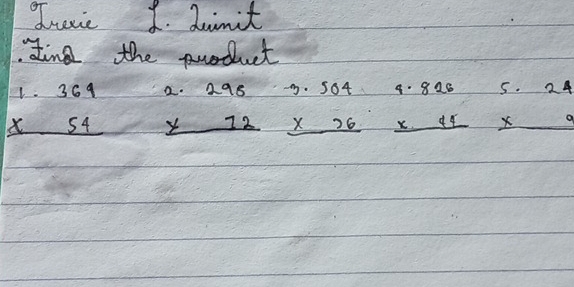 Irexie L. Quinit
.Find the product
1. 369 2. 295 3. 504 4. 826 5. 24
x 54 x 12 x 26 x 44 x 9